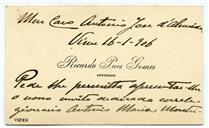 Meu Caro Antonio Jose d'Almeida
Vizeu 16-1-906
Ricardo Paes Gomes
ADVOGADO
Pede lhe permitta apresentar-lhe
o nosso muito dedicado correli-
gionario Antonio Maria
VIZEU